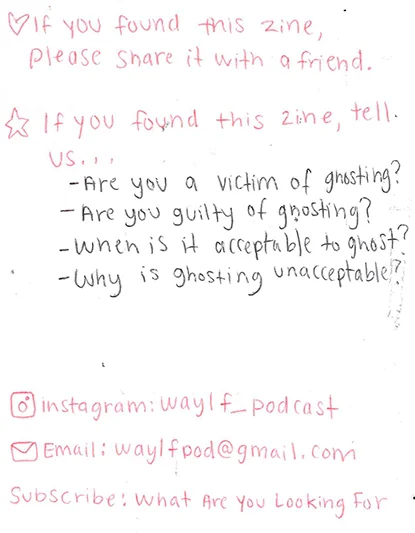 If you found this zine,
please share it with a friend.
If you found this zine, tell
us...
-Are you a victim of ghosting?
-Are you guilty of ghosting?
-When is it acceptable to ghost?
-Why is ghosting unacceptable?
instagram: waylf_podcast
Email: waylfpod@gmail.com
Subscribe: What Are You Looking For